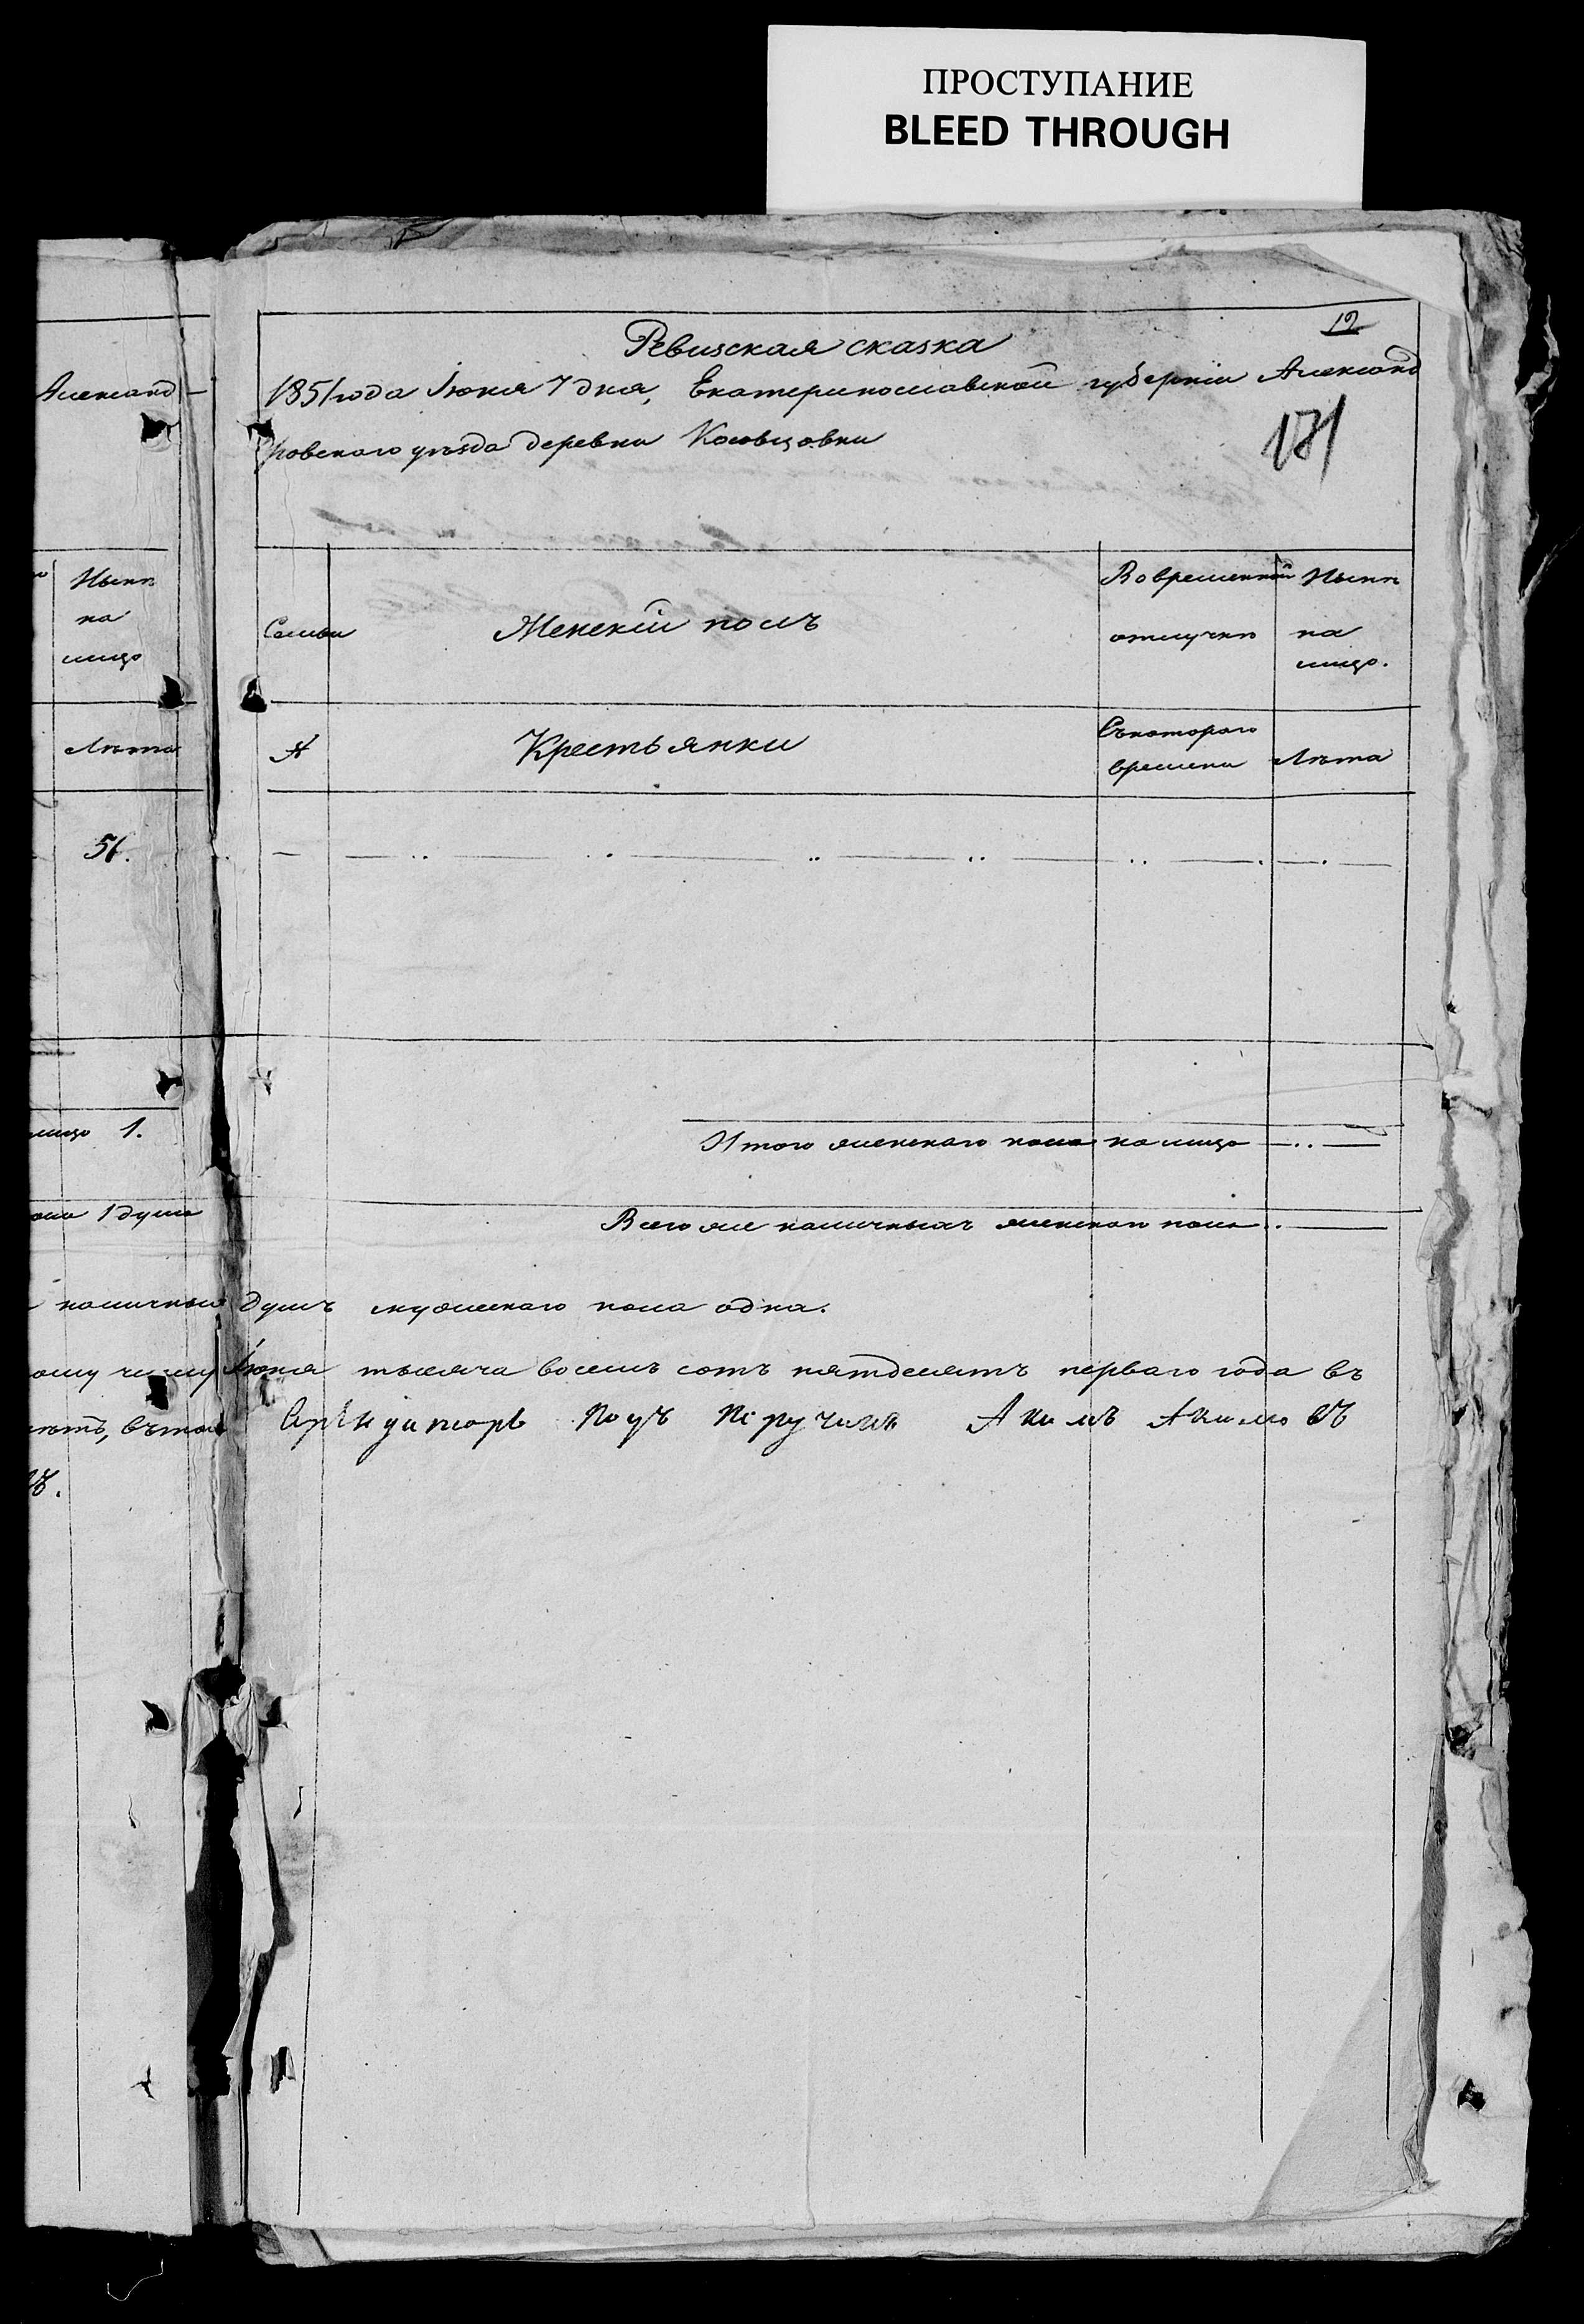 ПРОСТУПАНИЕ
BLEED THROUGH
12
Ревизская сказка
1851 года Іюня 7 дня, Екатеринославской губерніи Александ
ровскаго уѣзда деревни
181
Александ-
Нынѣ
на
лицо
Лѣта
51.
лицо 1.
1 душа
наличныхъ
Семьи
Женскій полъ
Во временной
отлучкѣ
Нынѣ
на
лицо.
№
Крестьянки
Съ котораго
времени
Лѣта
Итого женскаго пола на лицо
Всего же наличныхъ женскаго пола
душъ мужескаго пола одна.
Іюня тысяча восемь сотъ пятдесятъ перваго года въ
Акимъ Акимовъ